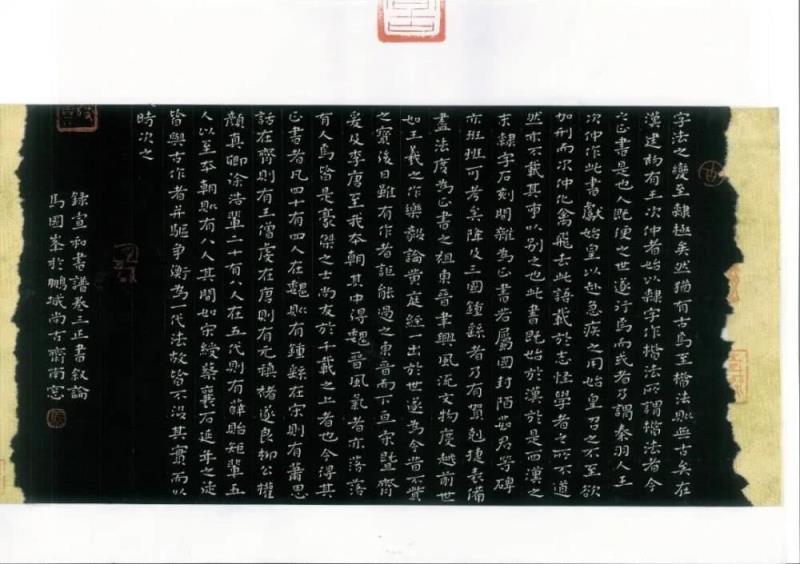 字法之變至隸極矣然猶有古焉至楷法則無古矣在
漢建初有王次仲者始以隸字作楷法所謂楷法者今
之正書是也人既便之世遂行焉而或者乃謂秦羽人王
次仲作此書獻始皇以赴急疾之用始皇召之不至欲
加刑而次仲化禽飛去此語載於志怪學者之所不道
然亦不載其事以別之也此書既始於漢於是西漢之
末隸字石刻間雜為正書若屬國封陌如君等碑
亦班班可考矣降及三國鍾繇者乃有賀剋捷表備
盡法度為正書之祖東晉聿興風流文物度越前世
如王羲之作樂毅論黃庭經一出於世遂為今昔不貲
之寶後日雖有作者詎能過之東晉而下亘宋暨齊
爰及李唐至我本朝其中得魏晉風氣者亦落落
有人焉皆是豪傑之士尚友於千載之上者也今得其
正書者凡四十有四人在魏則有鍾繇在宋則有蕭思
話在齊則有王僧虔在唐則有元稹褚遂良柳公權
顏真卿徐浩輩二十有八人在五代則有薛貽矩輩五
人以至本朝則有八人其間如宋綬蔡襄石延年之徒
皆與古作者并驅爭衡為一代法故皆不沒其實而以
時次之
錄宣和書譜卷三正書敘論
馬國峯於鵬城尚古齋南窗